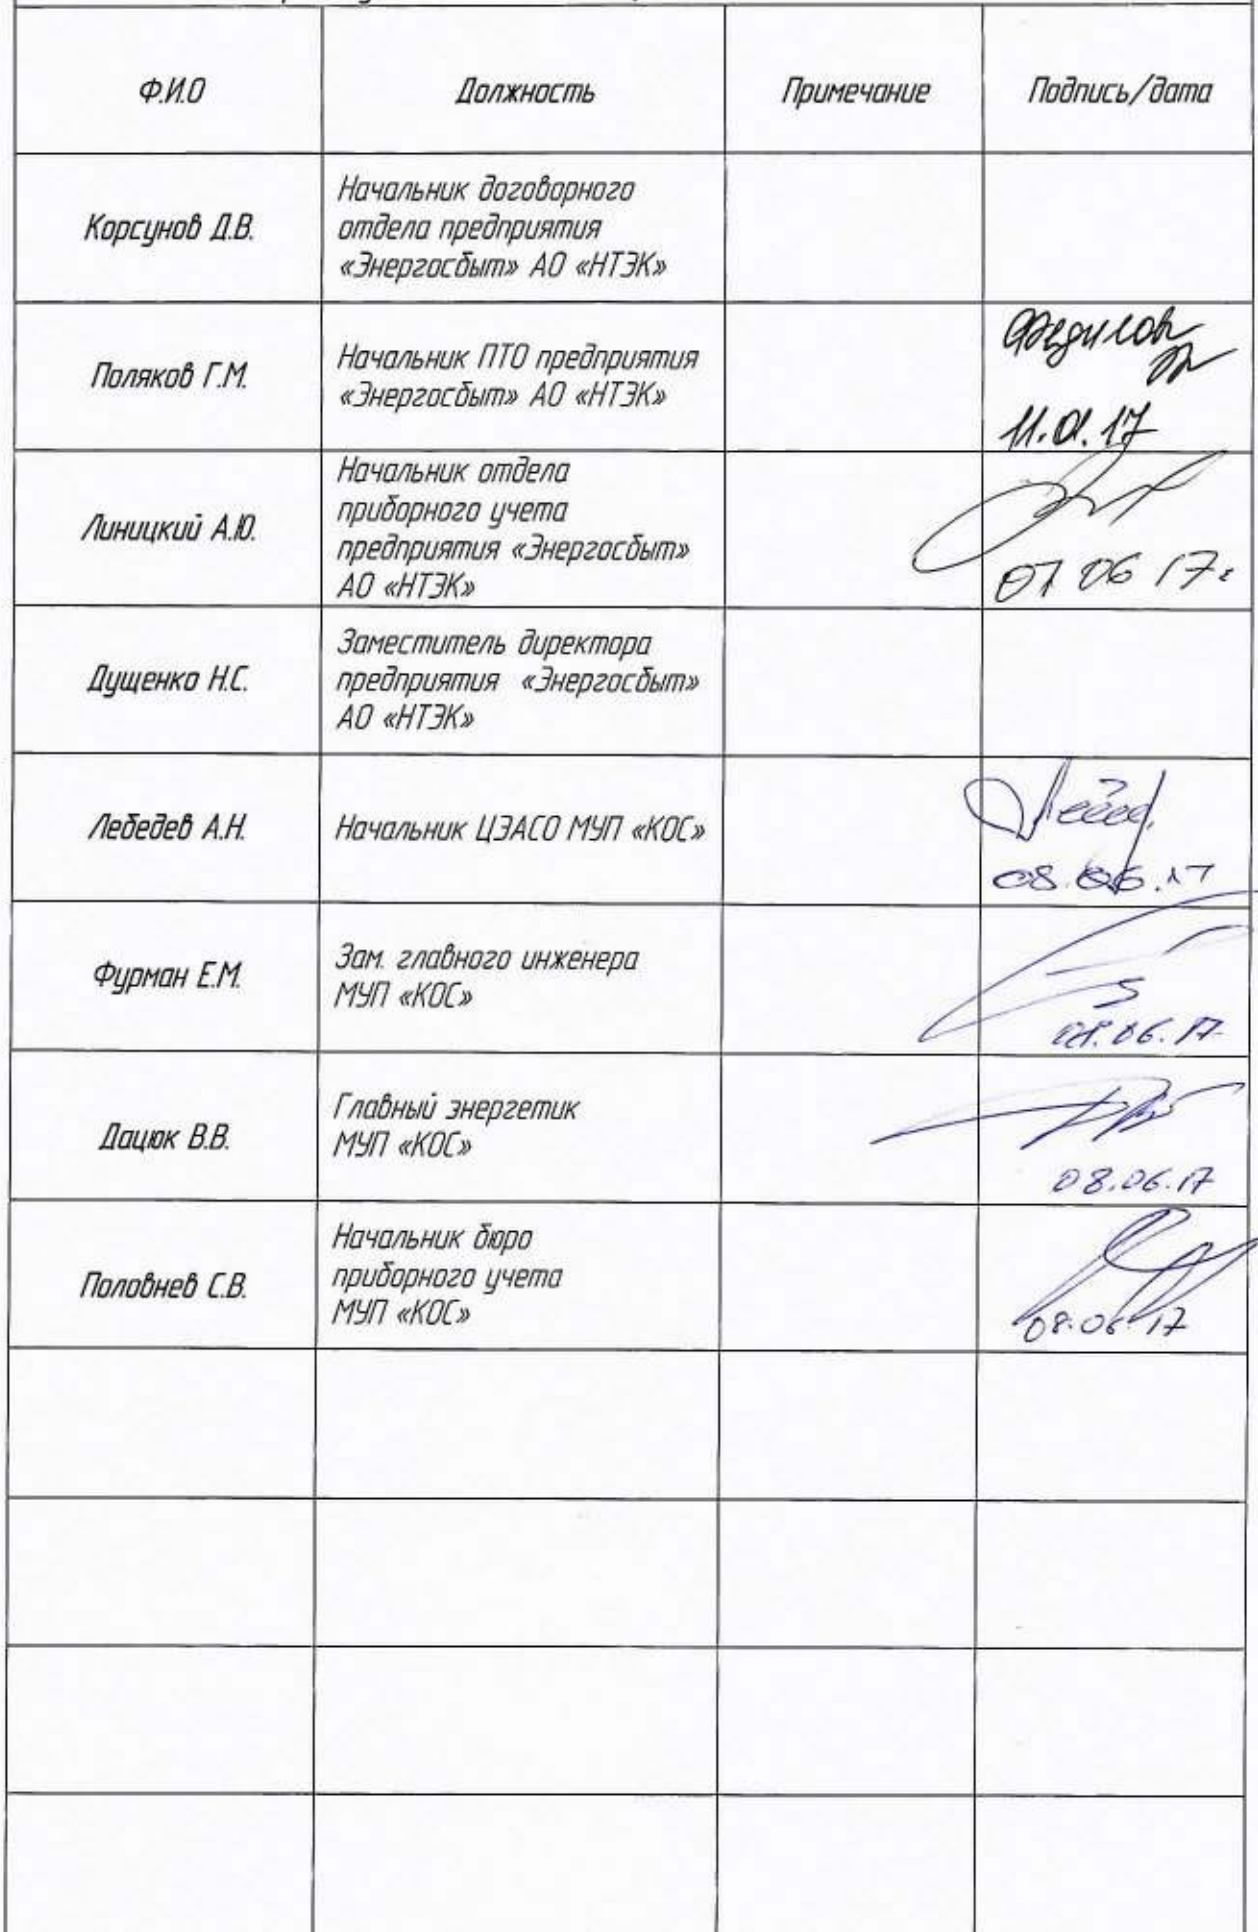 Ф.И.О
Должность
Примечание
Подпись/дата
Корсунов Д.В.
Начальник договорного
отдела предприятия
«Энергосбыт» АО «НТЭК»
Поляков Г.М.
Начальник ПТО предприятия
«Энергосбыт» АО «НТЭК»
11.01.17
Линицкий А.Ю.
Начальник отдела
приборного учета
предприятия «Энергосбыт»
АО «НТЭК»
07 06 17г
Дущенко Н.С.
Заместитель директора
предприятия «Энергосбыт»
АО «НТЭК»
Лебедев А.Н.
Начальник ЦЭАСО МУП «КОС»
08.06.17
Фурман Е.М.
Зам. главного инженера
МУП «КОС»
08.06.17
Дацюк В.В.
Главный энергетик
МУП «КОС»
08.06.17
Половнев С.В.
Начальник бюро
приборного учета
МУП «КОС»
08.06.17